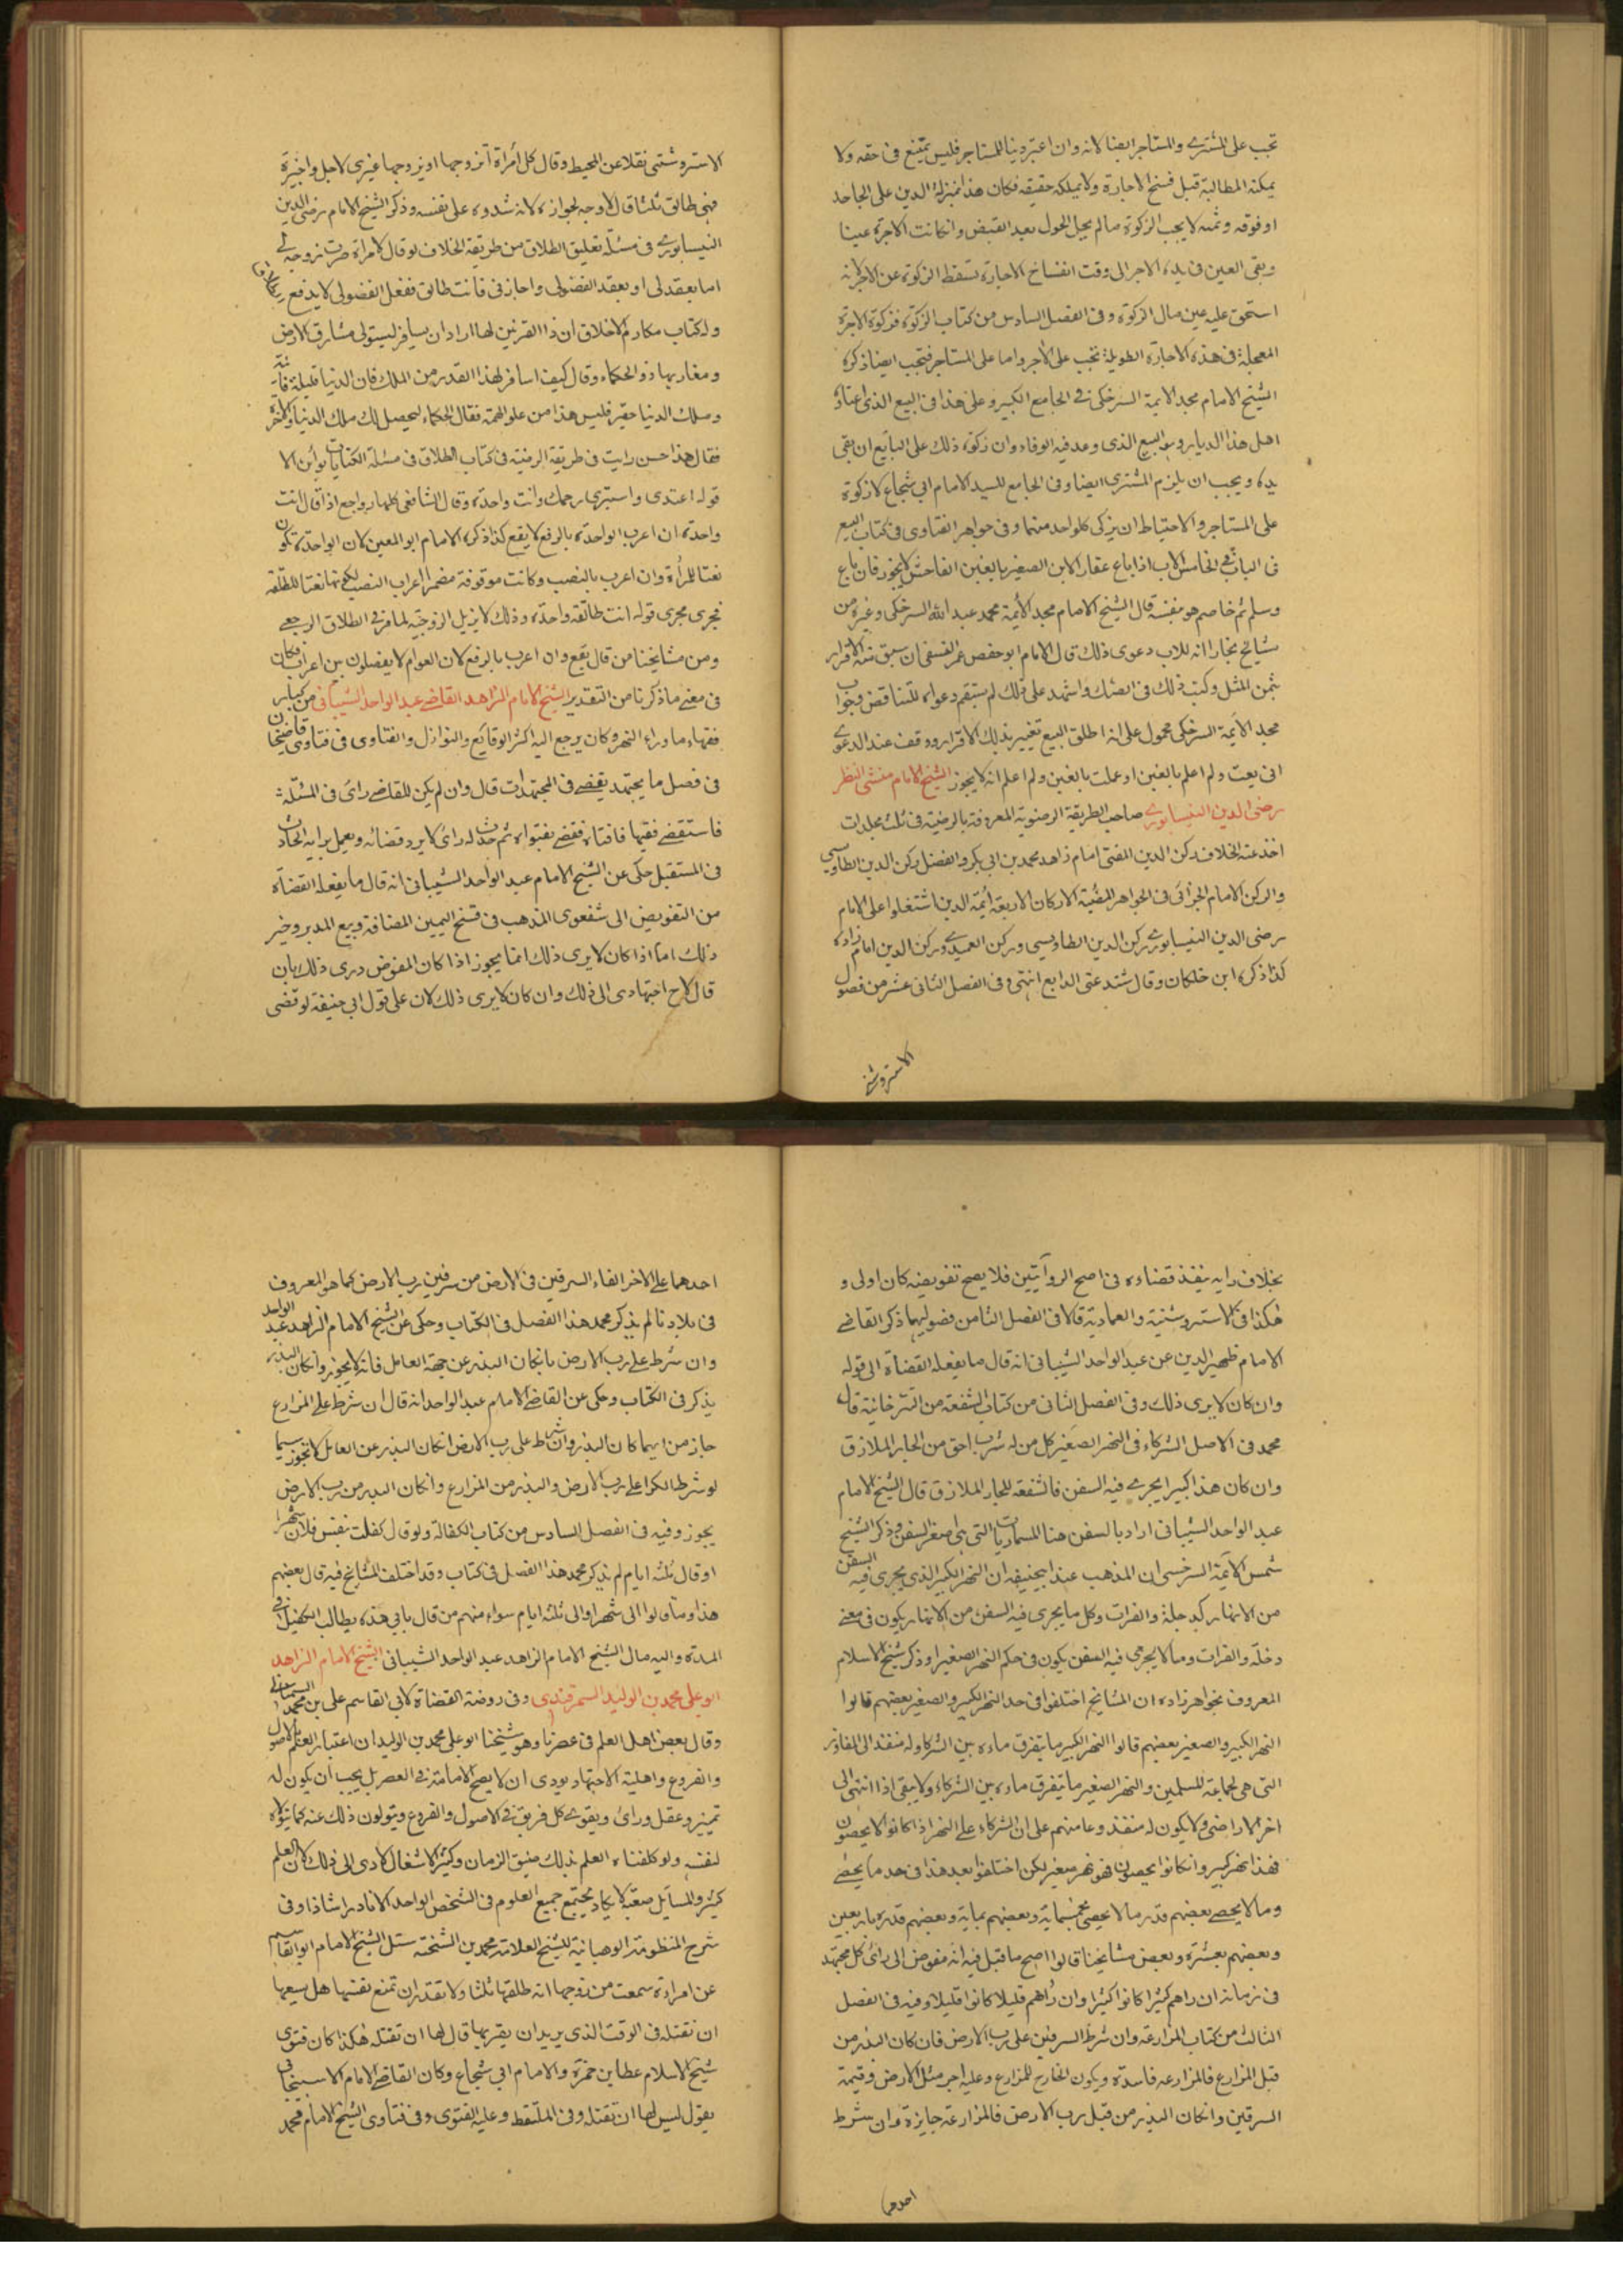 تجب على المشترى والمستاجر ايضا لانه وان اعتبر دينا للمستاجر فليس يمتنع فى حقه ولا
يمكنه المطالبة قبل فسخ الاجارة ولا يملكه حقيقة فكان هذا بمنزلة الدين على الجاحد
او فوقه وثمه لا يجب الزكوة ما لم يحل الحول بعد القبض وان كانت الاجرة عينا
وبقى العين فى يده الاجر الى وقت انفساخ الاجارة تسقط الزكوة عن الاجر لانه
استحق عليه عين مال الزكوة وفى الفصل السادس من كتاب الزكوة فزكوة الاجرة
المعجلة فى هذه الاجارة الطويلة تجب على الاجر واما على المستاجر فتجب ايضا ذكره
الشيخ الامام مجد الايمة السرخكى فى الجامع الكبير وعلى هذا فى البيع الذى اعتاد
اهل هذا الديار وهو البيع الذى وعد فيه الوفاء وان زكوة ذلك على البايع ان بقى
يده ويجب ان يلزم المشترى ايضا وفى الجامع للسيد الامام ابى شجاع لا زكوة
على المستاجر والاحتياط ان يزكى كل واحد منهما وفى جواهر الفتاوى فى كتاب البيع
فى الباب الخامس الاب اذا باع عقار الابن الصغير بالغبن الفاحش لا يجوز فان باع
وسلم ثم خاصم هو بنفسه قال الشيخ الامام مجد الأيمة محمد عبد الله السرخكى وغيره من
مشايخ بخارا انه للاب دعوى ذلك قال الامام ابو حفص عمر النسفى ان سبق منه الاقرار
بثمن المثل وكتب ذلك فى الصك واشهد على ذلك لم يستقم دعواه للتناقض وجواب
مجد الأيمة السرخكى محمول على انه اطلق البيع بغير ذلك الاقرار ووقف عند الدعوى
انى بعت ولم اعلم بالغبن او علمت بالغبن ولم اعلم انه لا يجوز الشيخ الامام منشى النظر
رضى الدين النيسابورى صاحب الطريقة الرضوية المعروفة بالرضية فى ثلث مجلدات
اخذ عنه الخلاف ركن الدين المفتى امام زاده محمد بن ابى بكر والفضل ركن الدين الطاوسى
والركن الامام الجزائى فى الجواهر المضية الاركان الاربعة أيمة الدين اشتغلوا على الامام
رضى الدين النيسابورى ركن الدين الطاووسى وركن العميدى وركن الدين امام زاده
كذا ذكره ابن خلكان وقال شتد عنى الرابع انتهى وفى الفصل الثانى عشر من فصول
الاستروشنى
الاستروشنى نقلا عن المحيط وقال كل امرأة اتزوجها او يزوجها غيرى لاجلى واخيرة
فهى طالق ثلثا قال لا وجه لجوازه لانه شدده على نفسه وذكر الشيخ الامام رضى الدين
النيسابورى فى مسئلة تعليق الطلاق من طريقة الخلاف لو قال لامرأة صرت زوجة لى
اما بعقد لى او بعقد الفضولى واجاز فى فانت طالق ففعل الفضولى لا يدفع
وله كتاب مكارم الاخلاق ان ذا القرنين لما اراد ان يسافر ليستولى مشارق الارض
ومغاربها ذو الحكماء وقال كيف اسافر لهذا القدر من الملك فان الدنيا قليلة فانية
وملك الدنيا حقير فليس هذا من علو الهمة فقال الحكماء ليحصل لك ملك الدنيا والآخرة
فقال هذا حسن رايت فى طريقة الرضية فى كتاب الطلاق فى مسئلة الكنايات بوائن الا
قوله اعتدى واستبرى رحمك وانت واحدة وقال الشافعى كلها رواجع اذا قال انت
واحدة ان اعرب الواحدة بالرفع لا يقع كذا ذكره الامام ابو المعين لان الواحدة تكون
نعتا للمرأة وان اعرب بالنصب وكانت موقوفة مضمر اعراب النصب لكونها نعتا للطلقة
فجرى مجرى قوله انت طالقة واحدة وذلك لا يزيل الزوجية لما عرف الطلاق الرجعى
ومن مشايخنا من قال يقع وان اعرب بالرفع لان العوام لا يفصلون بين اعراب فكان
فى معنى ما ذكرنا من التقدير الشيخ الامام الزاهد القاضى عبد الواحد الشيبانى من كبار
فقهاء ما وراء النهر وكان يرجع اليه اكثر الوقايع والنوازل والفتاوى فى فتاوى قاضيخان
فى فصل ما يجتهد يقضى فى المجتهدات قال وان لم يكن للقاضى رائ فى المسئلة
فاستقضى فقيها فافتاه فقضى بفتواه ثم حدث له رائ لا يرد قضائه ويعمل برايه الحادث
فى المستقبل حكى عن الشيخ الامام عبد الواحد الشيبانى انه قال ما يفعله القضاة
من التفويض الى شفعوى المذهب فى فسخ اليمين المضافة وبيع المدبر وغير
ذلك اما اذا كان لا يرى ذلك انما يجوز اذا كان المفوض يرى ذلك بان
قال لاح اجتهادى الى ذلك وان كان لا يرى ذلك لان على قول ابى حنيفة لو قضى
بخلاف رايه ينفذ قضاءه فى اصح الروايتين فلا يصح تفويضه كان اولى و
هكذا فى الاستروشنية والعمادية قالا فى الفصل الثامن فصوليهما ذكر القاضى
الامام ظهير الدين عن عبد الواحد الشيبانى انه قال ما يفعله القضاة الى قوله
وان كان لا يرى ذلك وفى الفصل الثانى من كتاب الشفعة من التترخانية قال
محمد فى الاصل الشركاء فى النهر الصغير كل من له شرب احق من الجار الملازق
وان كان هذا كبيرا يجرى فيه السفن فالشفعة للجار الملازق قال الشيخ الامام
عبد الواحد الشيبانى اراد بالسفن هنا المسماريات التى هى اصغر السفن وذكر الشيخ
شمس الأيمة السرخسى ان المذهب عند ابيحنيفة ان النهر الكبير الذى يجرى فيه السفن
من الانهار كدجلة والفرات وكل ما يجرى فيه السفن من الانهار يكون فى معنى
دخلة والفرات وما لا يجرى فيه السفن يكون فى حكم النهر الصغير وذكر شيخ الاسلام
المعروف بخواهر زاده ان المشايخ اختلفوا فى حد النهر الكبير والصغير بعضهم قالوا
النهر الكبير والصغير بعضهم قالوا النهر الكبير ما يتفرق ماءه بين الشركاء وله منفذ الى المفاوز
التى هى لجماعة المسلمين والنهر الصغير ما يتفرق ماءه بين الشركاء ولا يبقى اذا انتهى الى
اخر الاراضى ولا يكون له منفذ وعامتهم على ان الشركاء على النهر اذا كانوا لا يحصون
فهذا نهر كبير وان كانوا يحصون فهو نهر صغير لكن اختلفوا بعد هذا فى حد ما يحصى
وما لا يحصى بعضهم قدر ما لا يحصى بخمسماية وبعضهم بماية وبعضهم قدره باربعين
وبعضهم بعشرة وبعض مشايخنا قالوا اصح ما قيل فيه انه مفوض الى رائ كل مجتهد
فى زمانه ان راهم كثيرا كانوا كثيرا وان رأهم قليلا كانوا قليلا وفيه فى الفصل
الثالث من كتاب المزارعة وان شرط السرقين على رب الارض فان كان البذر من
قبل المزارع فالمزارعة فاسدة ويكون الخارج للمزارع وعليه اجر مثل الارض وقيمة
السرقين وان كان البذر من قبل رب الارض فالمزارعة جايزة وان شرط
احدهما
احدهما على الاخر القاء السرقين فى الارض من سرقين رب الارض كما هو المعروف
فى بلادنا لم يذكر محمد هذا الفصل فى الكتاب وحكى عن الشيخ الامام الزاهد عبد الواحد
وان شرط على رب الارض بان كان البذر عن جهة العامل فانه لا يجوز وان كان البذر
يذكر فى الكتاب وحكى عن القاضى الامام عبد الواحد انه قال ان شرط على المزارع
جاز من ايهما كان البذر وان شرط على رب الارض ان كان البذر عن العامل لا تجوز سيما
لو شرط الكرا على رب الارض والبذر من المزارع وان كان البذر من رب الارض
يجوز وفيه فى الفصل السادس من كتاب الكفالة ولو قال كفلت بنفس فلان شهرا
او قال ثلثه ايام لم يذكر محمد هذا الفصل فى كتاب وقد اختلف المشايخ فيه قال بعضهم
هذا وما قالوا الى شهر او الى ثلثه ايام سواء منهم من قال بانى هذه يطالب الكفيل فى
المدة واليه مال الشيخ الامام الزاهد عبد الواحد الشيبانى الشيخ الامام الزاهد
ابو على محمد بن الوليد السمرقندى وفى روضة القضاة لابى القاسم على بن محمد السمنانى
وقال بعض اهل العلم فى عصرنا وهو شيخنا ابو على محمد بن الوليد ان اعتبار العلم بالاصول
والفروع واهلية الاجتهاد يودى ان لا يصح الامامة فى العصر بل يجب ان يكون له
تميز وعقل ورائ ويقوى كل فريق فى الاصول والفروع ويتولون ذلك عنه كما يتولاه
لنفسه ولو كلفناه العلم بذلك ضيق الزمان وكثر الاشغال لادى الى ذلك لان العلم
كثير والمسايل صعبة لا يكاد يجتمع جميع العلوم فى الشخص الواحد الا نادرا شاذا وفى
شرح المنظومة الوهبانية للشيخ العلامة محمد بن الشحنة سئل الشيخ الامام ابو القاسم
عن امرأة سمعت من زوجها انه طلقها ثلثا ولا تقدر ان تمنع نفسها هل يسعها
ان تقتله فى الوقت الذى يريد ان يقربها قال لها ان تقتله هكذا كان فتوى
شيخ الاسلام عطا بن حمزة والامام ابى شجاع وكان القاضى الامام الاسبيجابى
يقول ليس لها ان تقتله وفى الملتقط وعليه الفتوى وفى فتاوى الشيخ الامام محمد